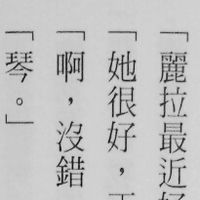 「麗拉最近
「她很好，
「啊，沒錯
「琴。」